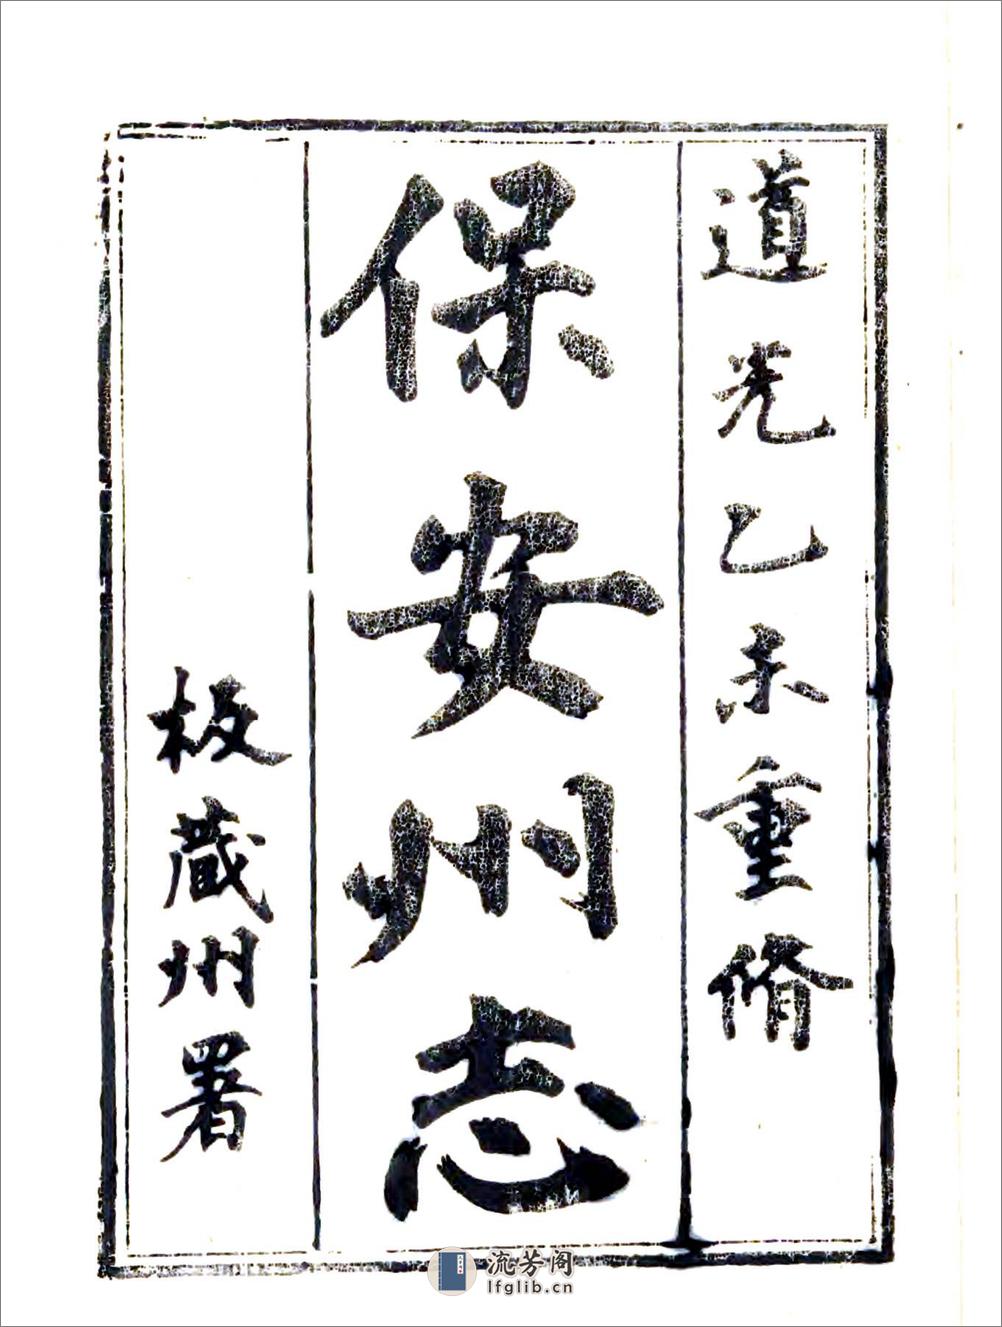 道光乙未重脩
保安州志
板藏州署
流芳阁
lfglib.cn